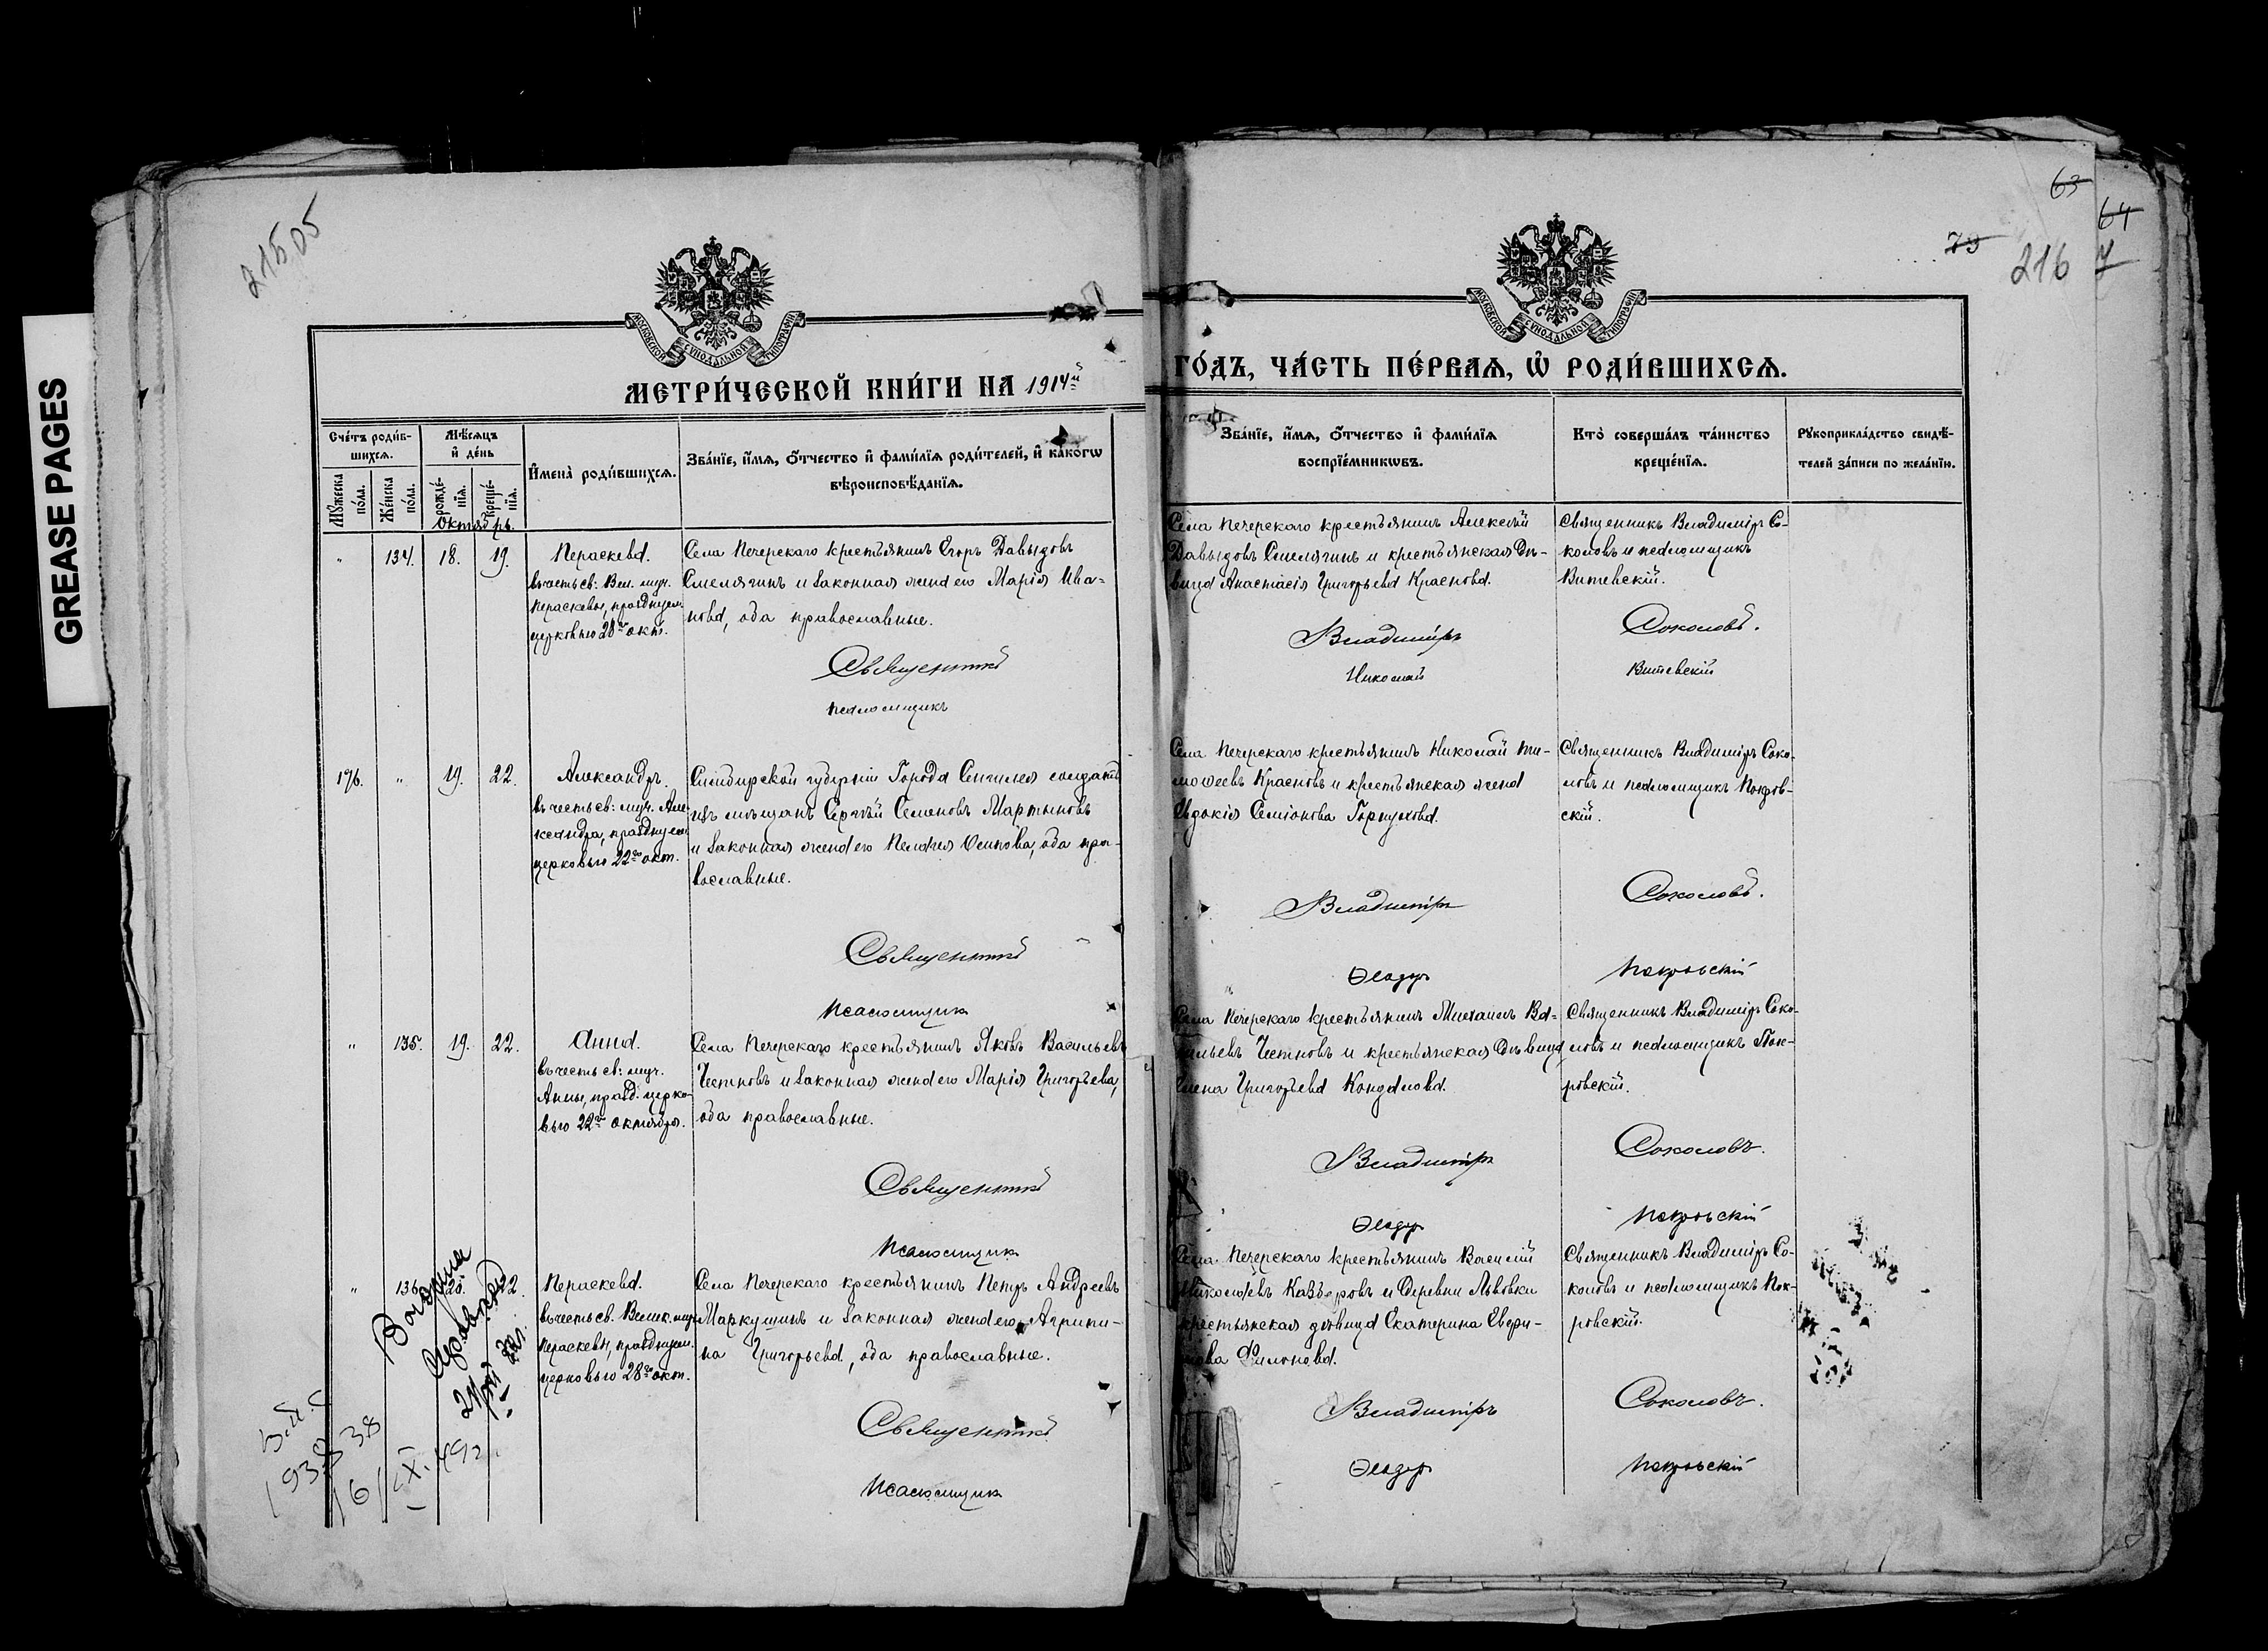 GREASE PAGES
215об
63
64
73
216
МОСКОВСКОЙ СѴНОДАЛЬНОЙ ТИПОГРАФІИ
МОСКОВСКОЙ СѴНОДАЛЬНОЙ ТИПОГРАФІИ
МЕТРИ́ЧЕСКОЙ КНИ́ГИ НА 1914й
ГО́ДЪ, ЧА́СТЬ ПЕ́РВАѦ, Ѡ҆ РОДИ́ВШИХСѦ.
Сче́тъ роди́в-
шихсѧ.
Мѣ́сѧцъ
и҆ де́нь
Мꙋ́жеска
по́ла.
Же́нска
по́ла.
рожде́-
нїѧ.
креще́-
нїѧ.
И҆мена̀ роди́вшихсѧ.
Зва́нїе, и҆́мѧ, ѻ҆́тчество и҆ фами́лїѧ роди́телей, и҆ како́гѡ
вѣроисповѣ́данїѧ.
Зва́нїе, и҆́мѧ, ѻ҆́тчество и҆ фами́лїѧ
воспрїе́мникѡвъ.
Кто̀ соверша́лъ та́инство
креще́нїѧ.
Рꙋкоприкла́дство свидѣ́-
телей за́писи по жела́нїю.
Октябрь.
" 134. 18. 19.
Параскева.
въ честь св: Вел. муч.
Параскевы, празднуем.
церковью 28го окт.
Села Печерскаго крестьянинъ Егоръ Давыдовъ
Смелягинъ и законная жена его Марія Ива-
нова, оба православные.
Священникъ
псаломщикъ
Села Печерскаго крестьянинъ Алексѣй
Давыдовъ Смелягинъ и крестьянская дѣ-
вица Анастасія Григорьева Краснова.
Владиміръ
Николай
Священникъ Владиміръ Со-
коловъ и псаломщикъ
Витевскій.
Соколовъ.
Витевскій
196. " 19. 22.
Александръ.
въ честь св: муч. Але-
ксандра, празднуем.
церковью 22го окт.
Симбирской губерніи Города Сенгилея солдатъ
изъ мѣщанъ Сергѣй Семеновъ Мартыновъ
и законная жена его Пелагея Осипова, оба пра-
вославные.
Священникъ
Псаломщикъ
Села Печерскаго крестьянинъ Николай Ти-
моѳеевъ Красновъ и крестьянская жена
Евдокія Семіонова Горкухова.
Владиміръ
Ѳеодоръ
Священникъ Владиміръ Соко-
ловъ и псаломщикъ Покров-
скій.
Соколовъ.
Покровскій
" 135. 19. 22.
Анна.
въ честь св: муч.
Анны, празд. церко-
вью 22го октября.
Села Печерскаго крестьянинъ Яковъ Васильевъ
Честновъ и законная жена его Марія Григорьева,
оба православные.
Священникъ
Псаломщикъ
Села Печерскаго крестьянинъ Михаилъ Ва-
сильевъ Честновъ и крестьянская дѣвица
Елена Григорьева Кондалова.
Владиміръ
Ѳеодоръ
Священникъ Владиміръ Соко-
ловъ и псаломщикъ Пок-
ровскій.
Соколовъ.
Покровскій
" 136. 20. 22.
Параскева.
въ честь св. Велик. муч.
Параскевы, празднуем.
церковью 28го окт.
Села Печерскаго крестьянинъ Петръ Андреевъ
Маркушинъ и законная жена его Агрипи-
на Григорьева, оба православные.
Священникъ
Псаломщикъ
Села Печерскаго крестьянинъ Василій
Николаевъ Казъ и деревни Львовки
крестьянская дѣвица Екатерина
Филонова.
Владиміръ
Ѳеодоръ
Священникъ Владиміръ Со-
коловъ и псаломщикъ Пок-
ровскій.
Соколовъ.
Покровскій
16/IX. 49г.